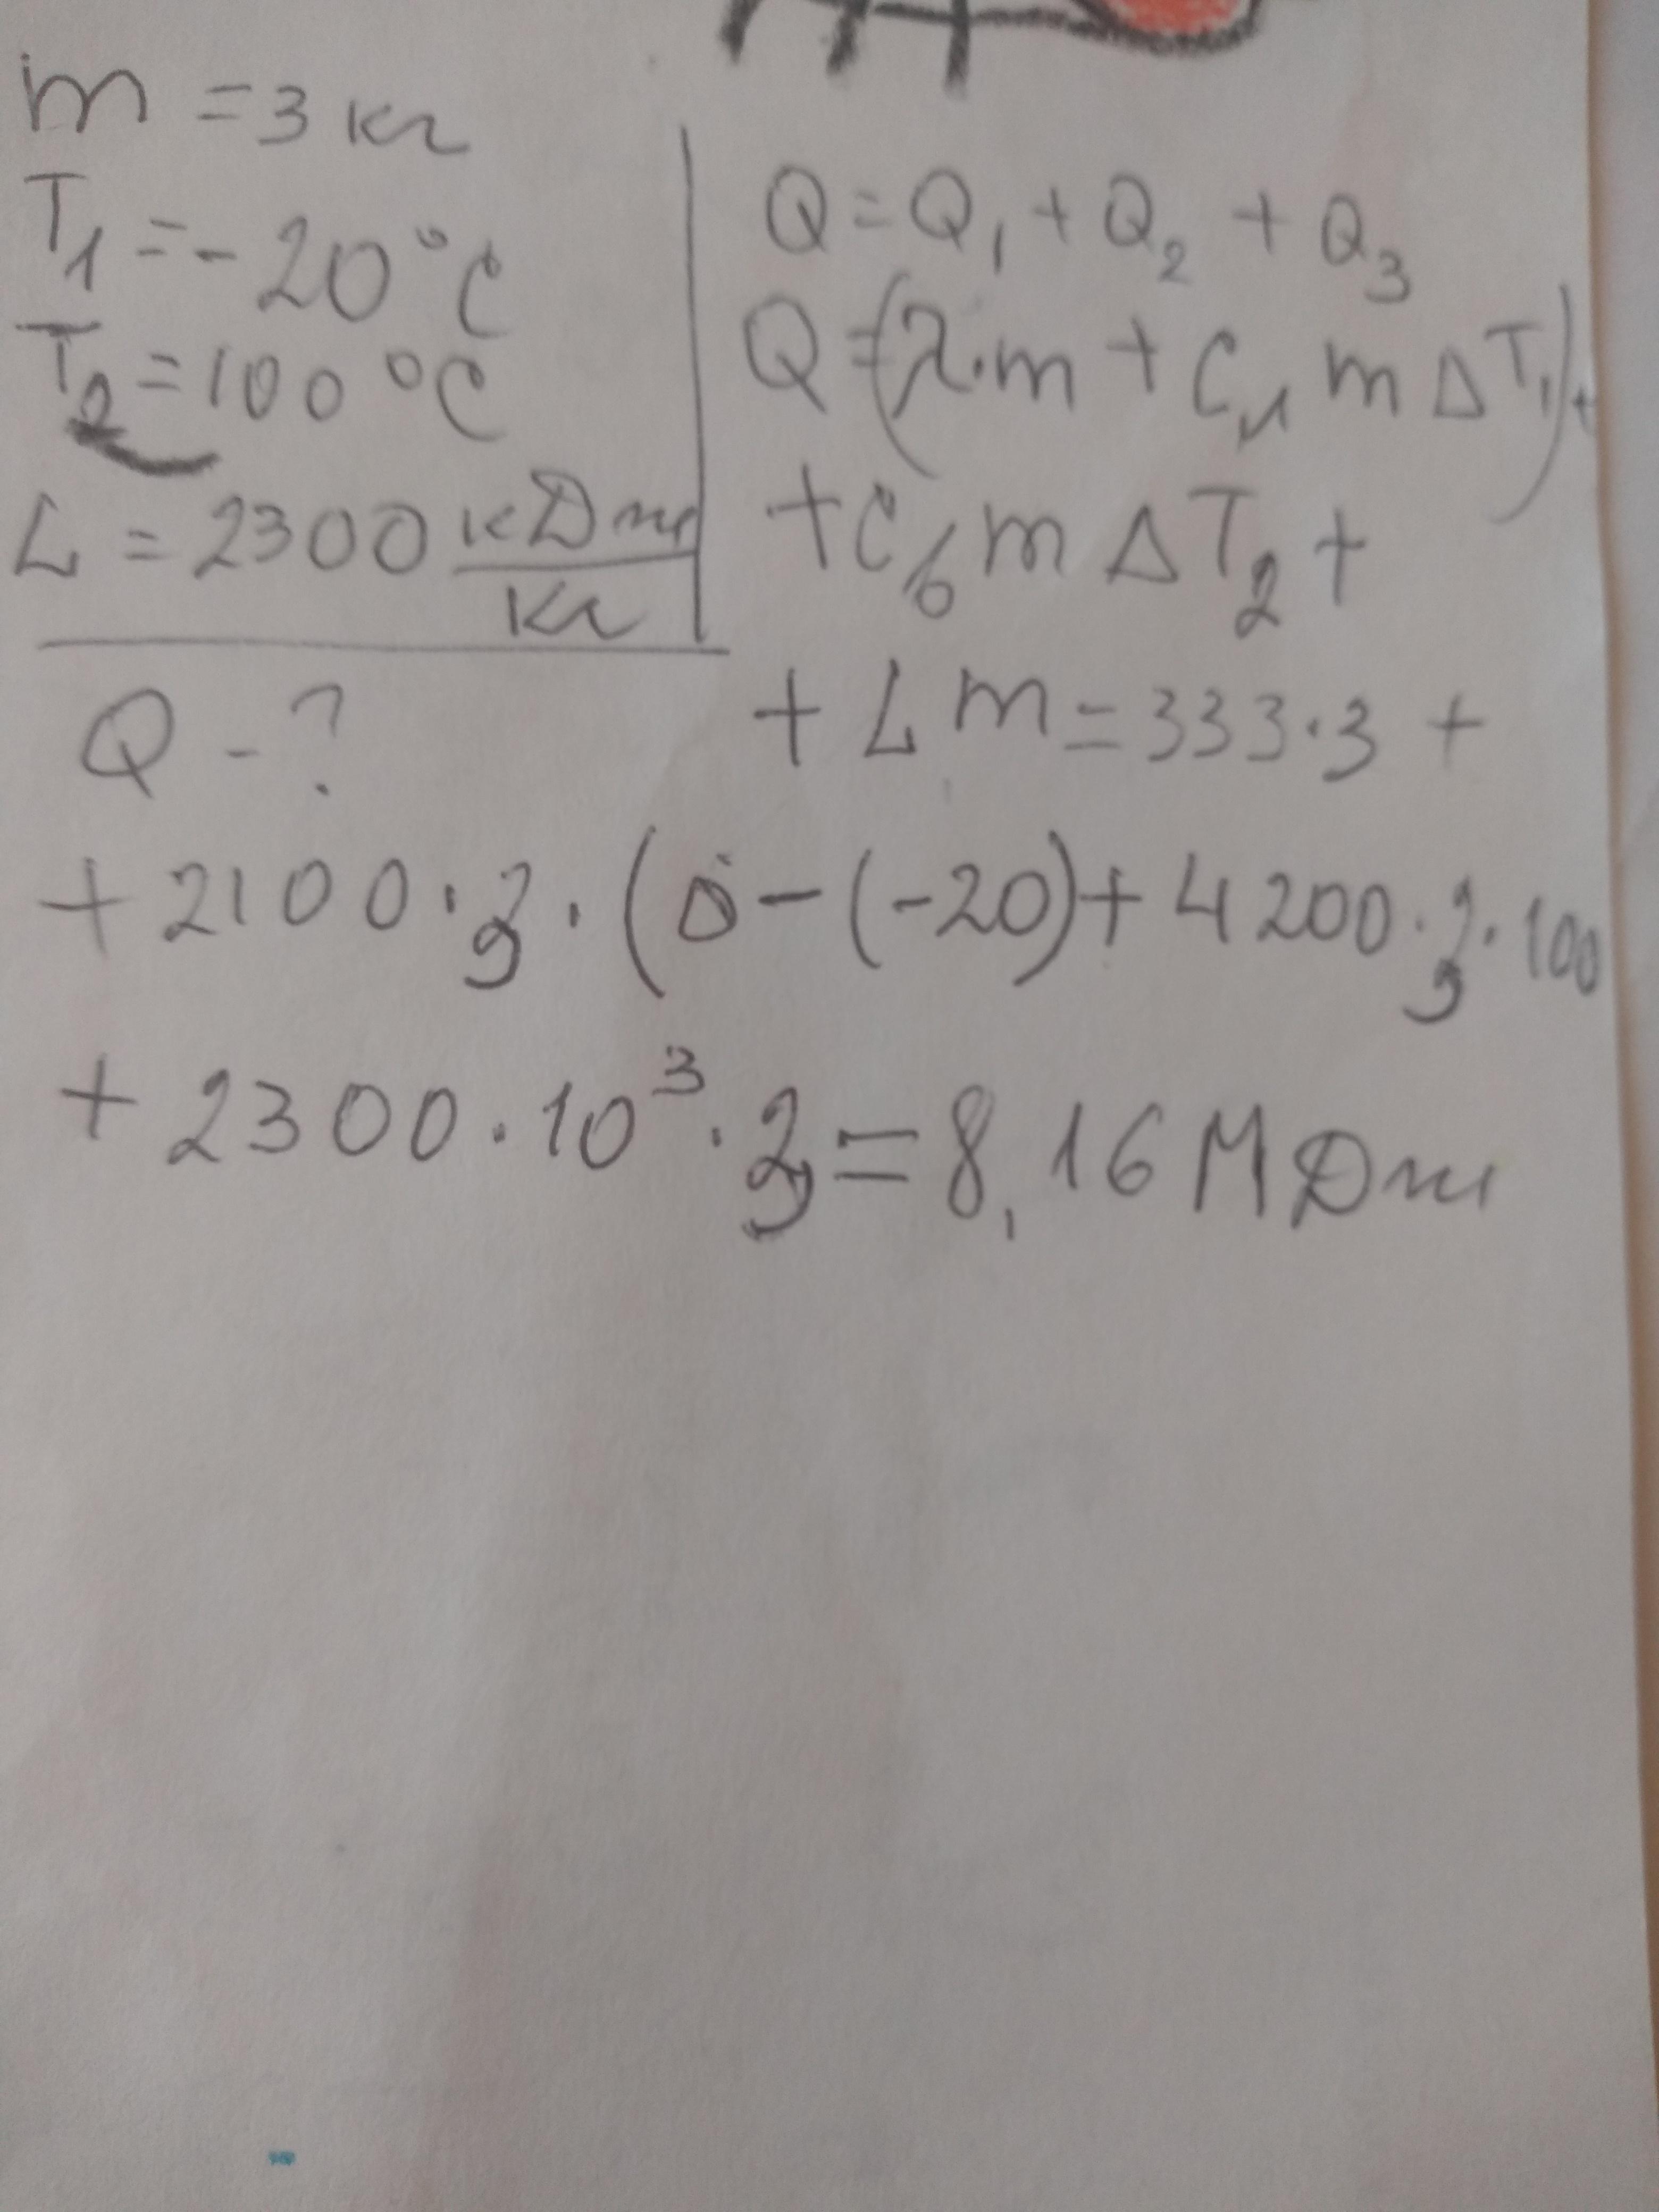 m = 3 кг
T₁ = - 20 °C
T₂ = 100 °C
L = 2300 кДж/кг
Q - ?
Q = Q₁ + Q₂ + Q₃
Q = (λ·m + Cл m ΔT₁) +
+ Cв m ΔT₂ +
+ L m = 333·3 +
+ 2100·3·(0 - (-20) + 4200·3·100
+ 2300·10³·3 = 8,16 МДж